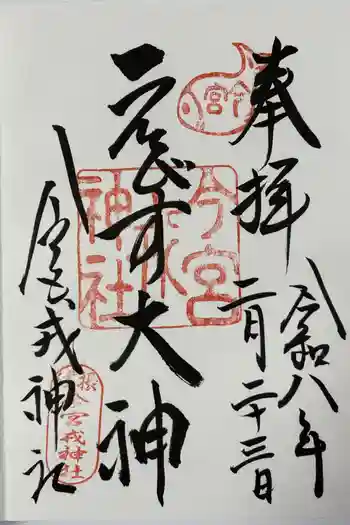 奉拝
令和八年
二月二十三日
びす大神
今宮戎神社
今宮
今宮戎神社
今宮戎神社